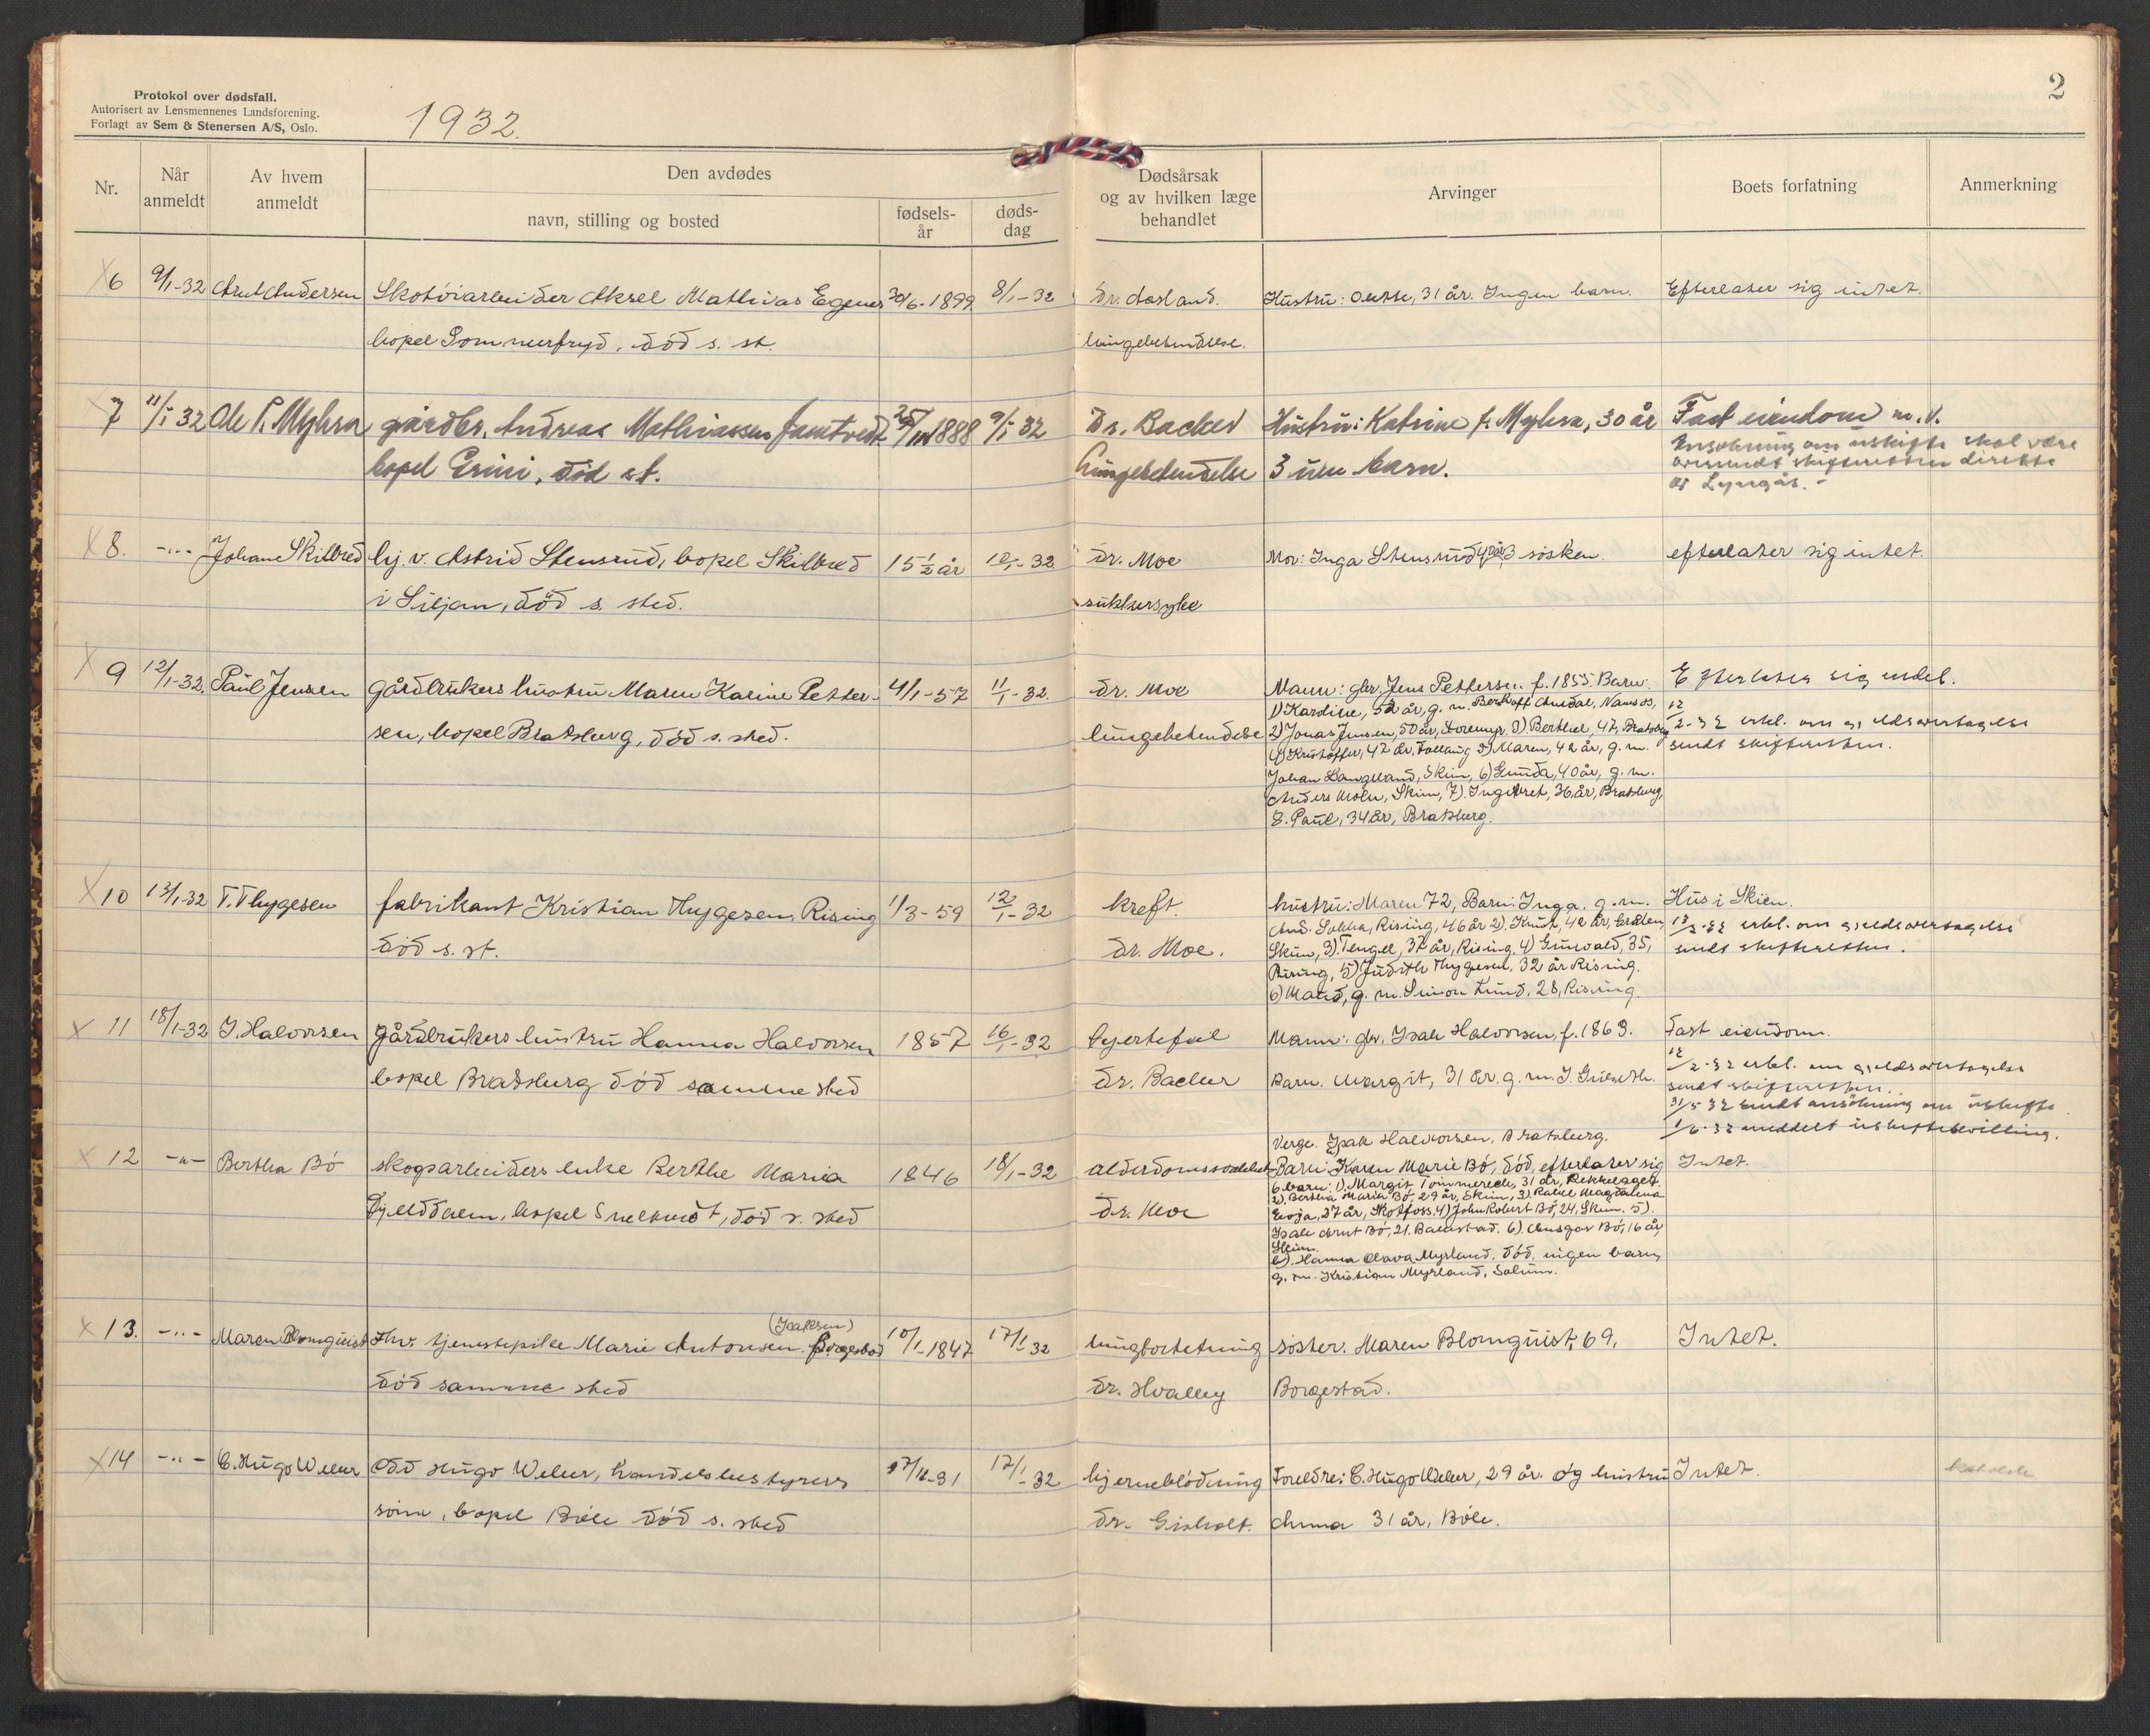 Protokol over dødsfall.
Autorisert av Lensmennenes Landsforening.
Forlagt av Sem & Stenersen A/S, Oslo.
1932.
2
Nr.
Når anmeldt
Av hvem anmeldt
Den avdødes
navn, stilling og bosted
fødsels-år
døds-dag
Dødsårsak og av hvilken læge behandlet
Arvinger
Boets forfatning
Anmerkning
X 6 9/1-32 Arnt Andersen Skotøiarbeider Aksel Mathias Egenes 30/6-1899 8/1-32 Dr. Aasland. Hustru: 31 år. Ingen barn. Efterlater sig intet.
bopel Sommerfryd, död s. st. lungebetendelse.
X 7 11/1 32 Ole P. Myhra gårdbr. Andreas Mathiassen Jamtvedt 1888 9/1 32 Dr. Backer Hustru: Katrine f. Myhra, 30 år Fast eiendom m.v.
bopel Grini, död st. Lungebetendelse 3 um. barn. Ansøkning om uskifte skal være
oversendt skifteretten direkte
X 8. -"- Johan Skilbred hj. v. Astrid Stensrud, bopel Skilbred 15 1/2 år 10/1-32 Dr. Moe Mor: Inga Stensrud 40 år 3 søsken. efterlater sig intet.
i Siljan, död s. sted. sukkersyke
X 9 12/1-32. Paul Jensen gårdbrukers hustru Maren Karine Petter- 4/1-57 11/1-32. Dr. Moe Mann: gbr. Jens Pettersen f. 1855. Barn: Efterlater sig endel.
sen, bopel Bratsberg, död s. sted. lungebetendelse
1) Kardine, 52 år, g. m. Namsos,
2) Jonas Jensen, 50 år, 3) Berthel, 47, Bratsberg 12/2-32 erkl. om gjeldsovertagelse
4) Kristoffer, 42 år, 5) Maren, 42 år, g. m. sendt skifteretten.
Johan Langeland, Skien, 6) Gunda, 40 år, g. m.
Anders Moen, Skien, 7) Ingebret, 36 år, Bratsberg,
8. Paul, 34 år, Bratsberg.
X 10 13/1-32 T. Thygesen fabrikant Kristian Thygesen, Rising 1/3-59 12/1-32 kreft. hustru: Maren 72, Barn: Inga. g. m. Hus i Skien.
död s. st. Dr. Moe.
And. Rising, 46 år 2). Knut, 42 år, 13/2-32 erkl. om gjeldsovertagelse
Skien, 3). Tengel, 37 år, Rising, 4) Gunvald, 35, sendt skifteretten.
Rising, 5) Judith Thygesen, 32 år Rising.
6) Maud, g. m. Simon Lund, 28, Rising.
X 11 18/1-32 I. Halvorsen gårdbrukers hustru Hanna Halvorsen 1857 16/1-32 hjertefeil Mann: gbr. Isak Halvorsen, f. 1863. Fast eiendom.
bopel Bratsberg död samme sted Dr. Backer Barn. Margit, 31 år. g. m. J. 12/2-32 erkl. om gjeldsovertagelse
sendt skifteretten.
31/5 32 sendt ansökning om uskifte
1/6-32 meddelt uskiftebevilling.
Verge. Isak Halvorsen, Bratsberg.
X 12 -"- Bertha Bö skogsarbeiders enke Berthe Maria 1846 18/1-32 alderdomssvakhet Barn: Karen Marie Bö, död, efterlater sig Intet.
bopel död s. sted Dr. Moe
6 barn: 1). Margit 31 år,
2). Bertha Marie Bö, 29 år, Skien, 3). Rakel Magdalena
27 år, Skotfoss, 4) John Robert Bö, 24, Skien. 5).
Isak Arnt Bö, 21. 6) Ansgar Bö, 16 år,
Skien.
b). Hanna Olava Myrland, död. ingen barn,
g. m. Kristian Myrland, Solum.
(Isaksen)
X 13. -"- Maren Blomquist Fhv. tjenestepike Marie Antonsen. Borgestad 10/1-1847 17/1 32 lungbetendning søster. Maren Blomquist, 69, Intet.
död samme sted Dr. Hvalby Borgestad.
X 14 -"- C. Hugo Weber Odd Hugo Weber, handelsbestyrers 17/1-32 hjerneblödning Foreldre: C. Hugo Weber, 29 år. og hustru Intet.
sönn, bopel Böle död s. sted Dr. Gisholt. Anna 31 år, Böle.